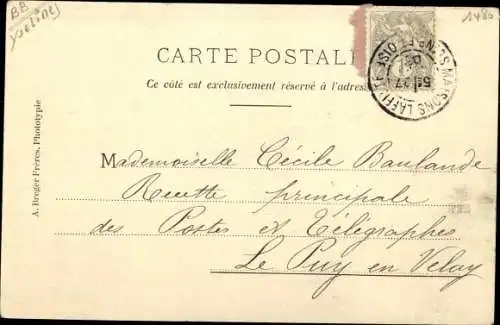 BB
Yvelines
1480
CARTE POSTALE
Ce côté est exclusivement réservé à l'adresse
MAISONS-LAFFITTE
Sne ET OISE
A. Breger Frères, Phototypie
Mademoiselle Cécile Baulande
Recette principale
des Postes et Télégraphes
Le Puy en Velay